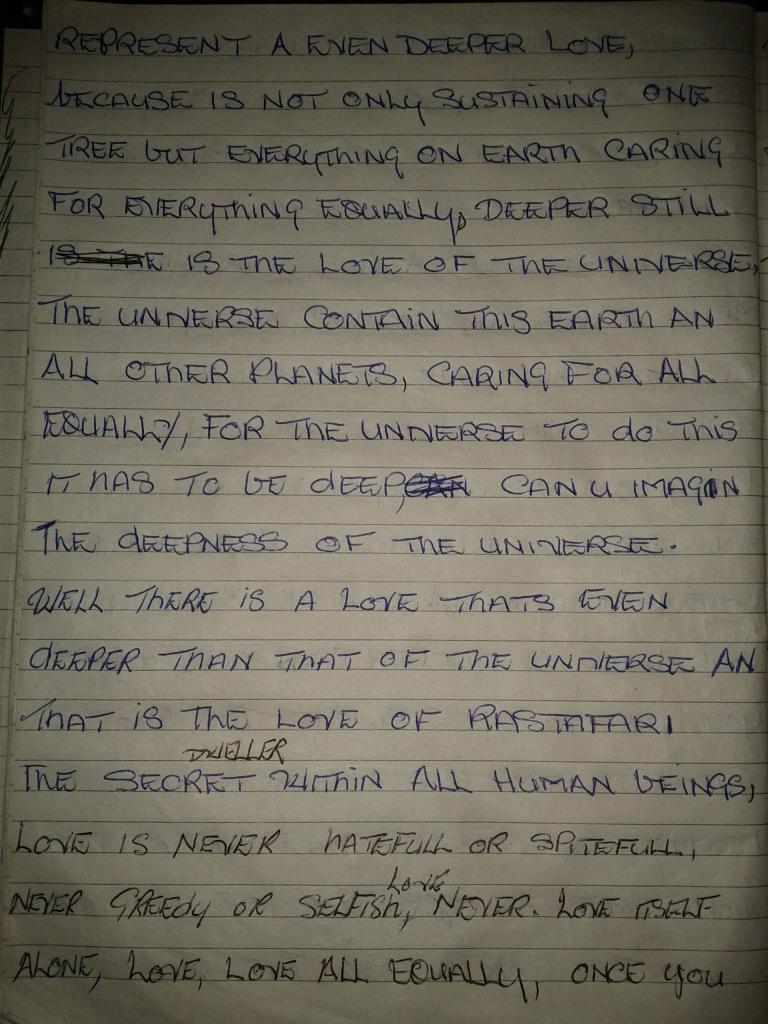 REPRESENT A EVEN DEEPER LOVE,
bECAUSE IS NOT ONLY SUSTAINING ONE
TREE bUT EVERYTHING ON EARTH CARING
FOR EVERYTHING EQUALLY, DEEPER STILL
IS THE LOVE OF THE UNIVERSE,
THE UNIVERSE CONTAIN THIS EARTH AN
ALL OTHER PLANETS, CARING FOR ALL
EQUALLY, FOR THE UNIVERSE TO do THIS
IT HAS TO bE dEEP, CAN U IMAGIN
THE dEEPNESS OF THE UNIVERSE.
WELL THERE IS A LOVE THATS EVEN
dEEPER THAN THAT OF THE UNIVERSE AN
THAT IS THE LOVE OF RASTAFARI
DWELLER
THE SECRET WITHIN ALL HUMAN bEINGS,
LOVE IS NEVER HATEFULL OR SPITEFULL,
LOVE
NEVER GREEdy OR SELFISH, NEVER. LOVE ITSELF
ALONE, LOVE, LOVE ALL EQUALLY, ONCE YOU